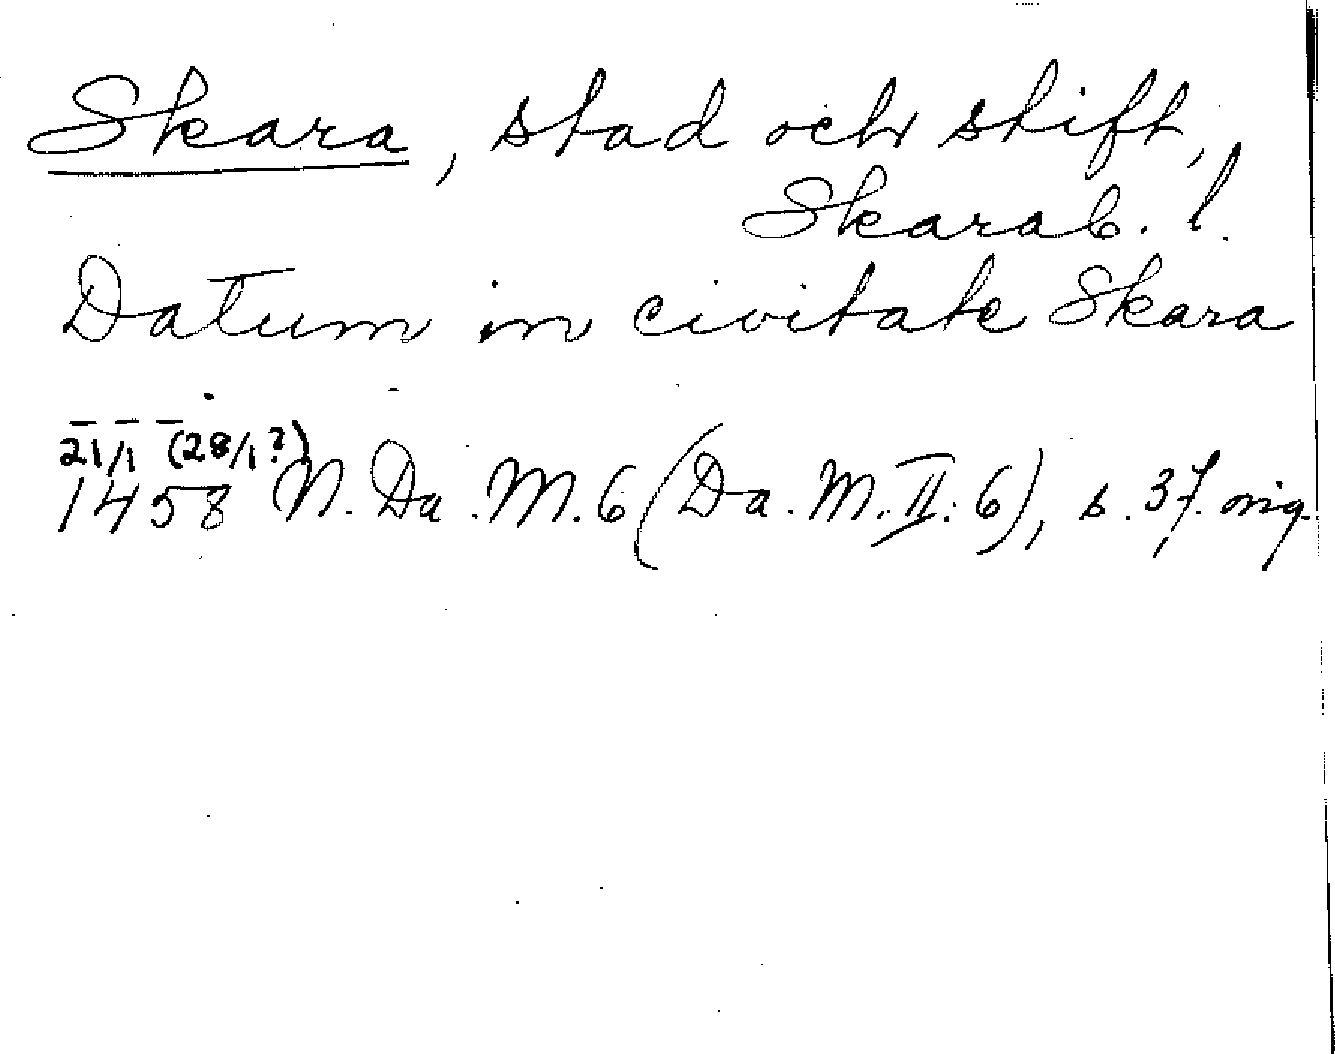 Skara, stad och stift,
Skarab. l.
Datum in civitate Skara
21/1 (28/1?)
1458 N. Da. M. 6 (Da. M. II. 6), s. 37. orig.